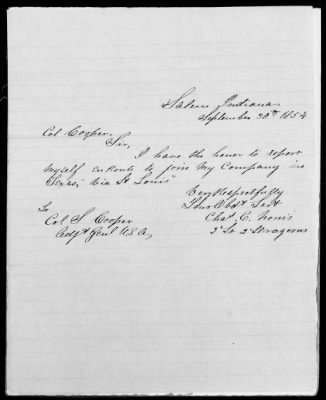 Salem Indiana
September 20th 1854
Col Cooper,
Sir,
I have the honor to report
myself en Route to join my Company in
Texas, "Via St Louis"
Very Respectfully
Your Obdt Servt
Chas. E. Norris
2d Lt 2d Dragoons
To
Col S. Cooper
Adjt Genl U.S.A,